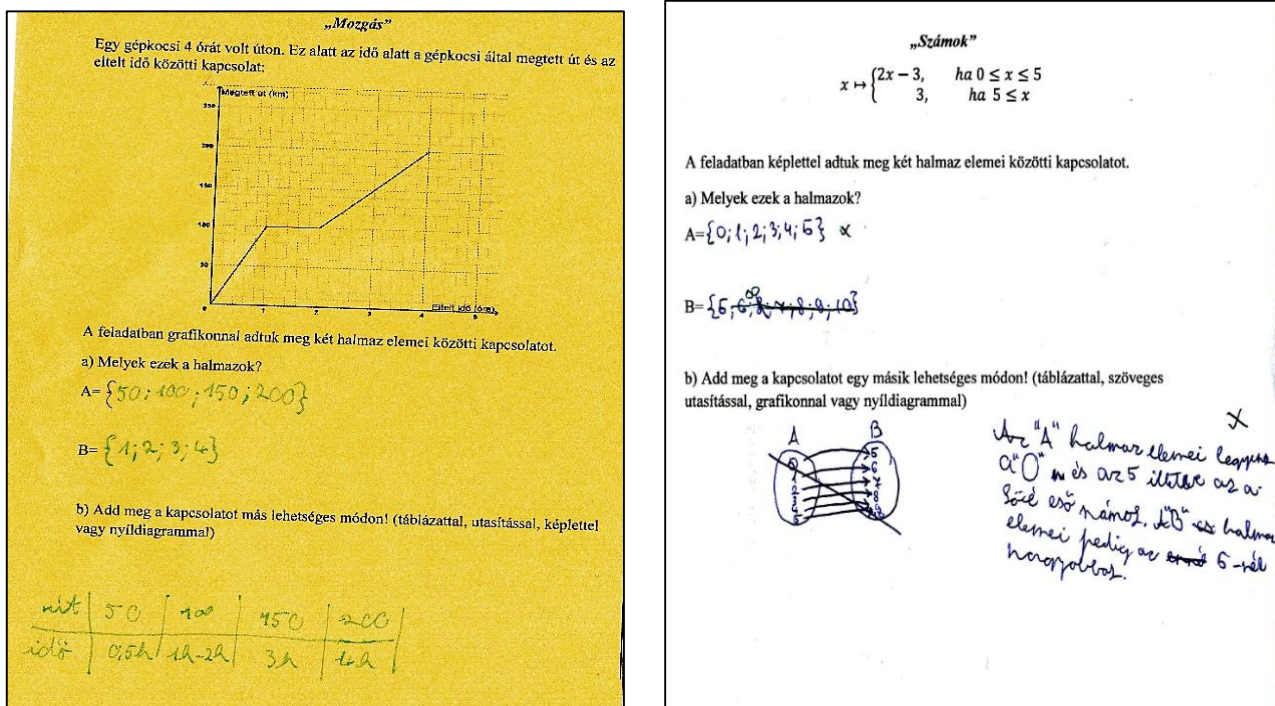 „Mozgás”
Egy gépkocsi 4 órát volt úton. Ez alatt az idő alatt a gépkocsi által megtett út és az
eltelt idő közötti kapcsolat:
Megtett út (km)
200
150
100
50
0
1
2
3
4
5
Eltelt idő (óra)
A feladatban grafikonnal adtuk meg két halmaz elemei közötti kapcsolatot.
a) Melyek ezek a halmazok?
A= {50; 100; 150; 200}
B= {1; 2; 3; 4}
b) Add meg a kapcsolatot más lehetséges módon! (táblázattal, utasítással, képlettel
vagy nyíldiagrammal)
út | 50 | 100 | 150 | 200 |
idő | 0,5h | 1h-2h | 3h | 4h
„Számok”
x ↦ {2x − 3, ha 0 ≤ x ≤ 5
3, ha 5 ≤ x
A feladatban képlettel adtuk meg két halmaz elemei közötti kapcsolatot.
a) Melyek ezek a halmazok?
A={0; 1; 2; 3; 4; 5} x
B= {5; 6; 7; 8; 9; 10}
b) Add meg a kapcsolatot egy másik lehetséges módon! (táblázattal, szöveges
utasítással, grafikonnal vagy nyíldiagrammal)
A B
0 5
1 6
2 7
3 8
4 9
5
X
Az "A" halmaz elemei
a "0" és az 5 illetve az a
eső számok. A "B" halmaz
elemei pedig az 5-nél